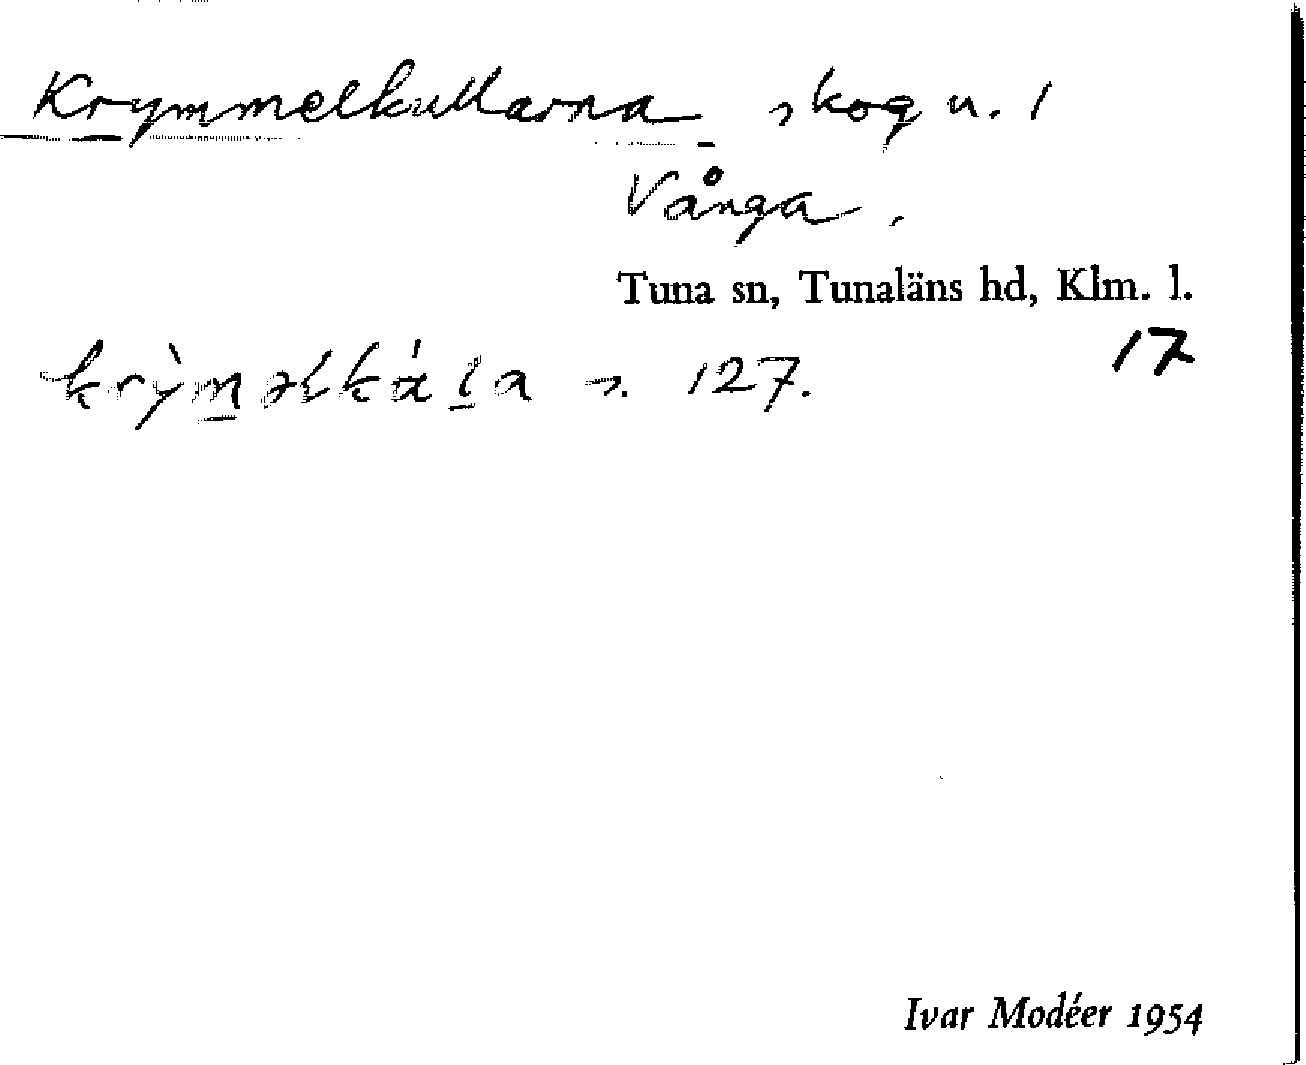 Krymmelkullarna skog u. 1
Vånga.
Tuna sn, Tunaläns hd, Klm. l.
17
krỳm̲əlká̵l̲a s. 127.
Ivar Modéer 1954